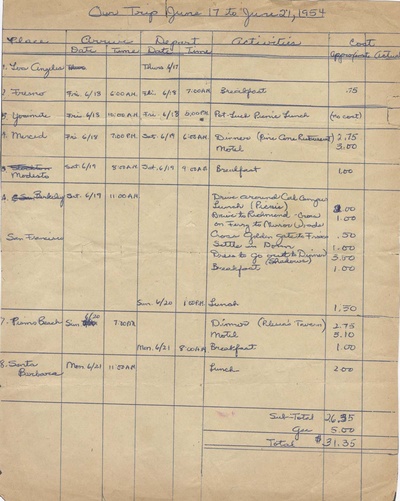 Our Trip June 17 to June 21, 1954
Place Arrive Depart Activities Cost
Date Time Date Time Approximate Actual
1. Los Angeles Thurs 6/17
2 Fresno Fri. 6/18 6:00 A.M. Fri. 6/18 7:00 AM Breakfast .75
3 Yosemite Fri. 6/18 10:00 AM Fri. 6/18 5:00 PM Pot-Luck Picnic Lunch (no cost)
4 Merced Fri. 6/18 7:00 P.M. Sat. 6/19 6:00 AM Dinner (Pine Cone Restaurant) 2.75
Motel 5.00
5 Stockton Sat. 6/19 8:00 AM Sat. 6/19 9:00 AM Breakfast 1.00
Modesto
6. Berkeley Sat. 6/19 11:00 AM Drive around Cal Campus
Lunch (Picnic) 1.00
Drive to Richmond - Cross 1.00
on Ferry to Muir Woods
Cross Golden Gate to Frisco .50
San Francisco Settle in Dorm 1.00
Dress to go out to Dinner 5.00
(Shadows)
Breakfast 1.00
Sun. 6/20 1:00 P.M. Lunch 1.50
7. Pismo Beach Sun. 6/20 7:30 PM Dinner (Plessa's Tavern) 2.75
Motel 5.10
Mon. 6/21 8:00 AM Breakfast 1.00
8. Santa Mon 6/21 11:00 AM Lunch 2.00
Barbara
Sub-Total 26.35
Gas 5.00
Total $31.35